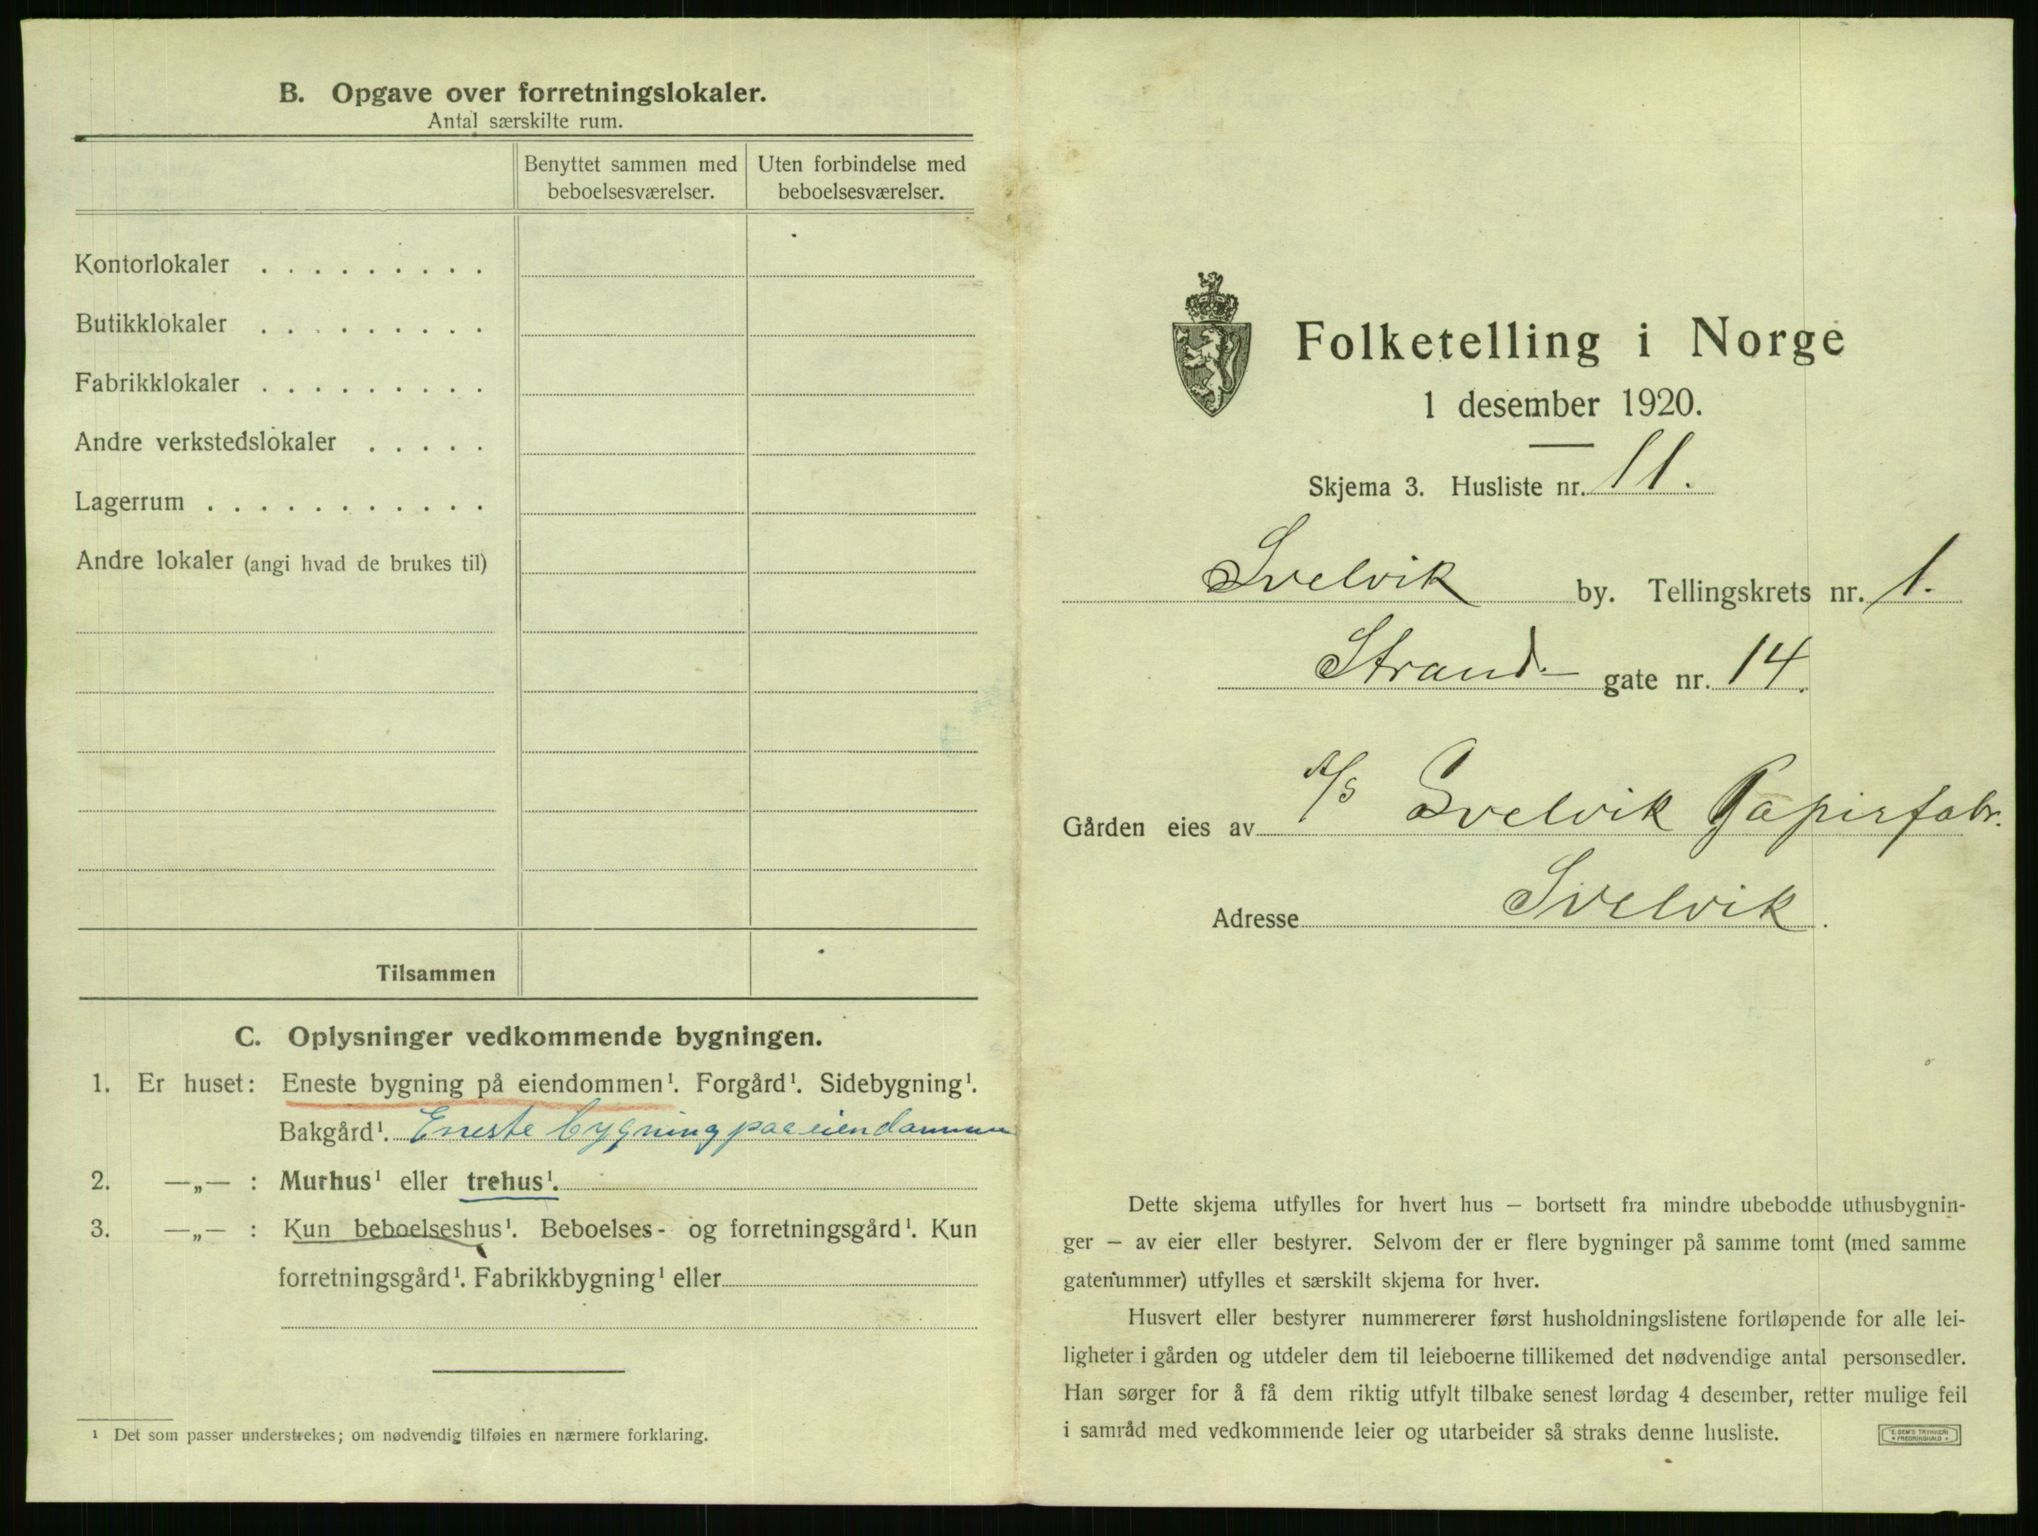 B. Opgave over forretningslokaler.
Antal særskilte rum.
Benyttet sammen med beboelsesværelser.
Uten forbindelse med beboelsesværelser.
Kontorlokaler . . . . . . . . .
Butikklokaler . . . . . . . . .
Fabrikklokaler . . . . . . . . .
Andre verkstedslokaler . . . . .
Lagerrum . . . . . . . . . . .
Andre lokaler (angi hvad de brukes til)
Tilsammen
C. Oplysninger vedkommende bygningen.
1. Er huset: Eneste bygning på eiendommen¹. Forgård¹. Sidebygning¹.
Bakgård¹. Eneste bygning paa eiendommen
2. —„— : Murhus¹ eller trehus¹.
3. —„— : Kun beboelseshus¹. Beboelses- og forretningsgård¹. Kun
forretningsgård¹. Fabrikkbygning¹ eller
¹ Det som passer understrekes; om nødvendig tilføies en nærmere forklaring.
Folketelling i Norge
1 desember 1920.
Skjema 3. Husliste nr. 11.
Svelvik by. Tellingskrets nr. 1.
Strand- gate nr. 14.
Gården eies av A/S Svelvik Papirfabr.
Adresse Svelvik.
Dette skjema utfylles for hvert hus — bortsett fra mindre ubebodde uthusbygnin-
ger — av eier eller bestyrer. Selvom der er flere bygninger på samme tomt (med samme
gatenummer) utfylles et særskilt skjema for hver.
Husvert eller bestyrer nummererer først husholdningslistene fortløpende for alle lei-
ligheter i gården og utdeler dem til leieboerne tillikemed det nødvendige antal personsedler.
Han sørger for å få dem riktig utfylt tilbake senest lørdag 4 desember, retter mulige feil
i samråd med vedkommende leier og utarbeider så straks denne husliste.
E. SEM'S TRYKKERI
• FREDRIKSHALD •